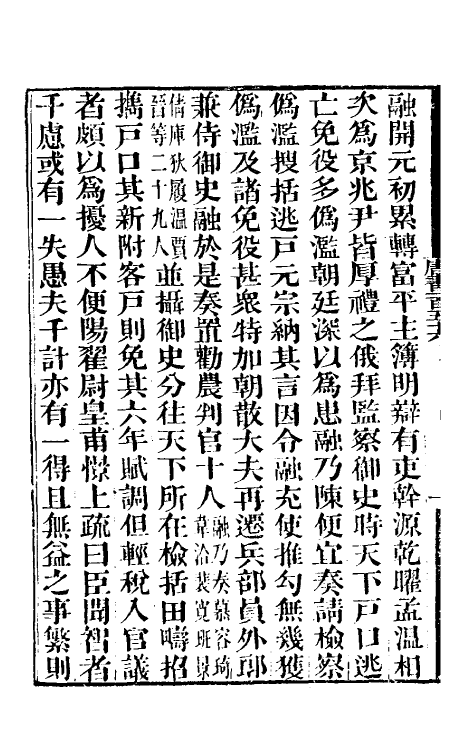 融開元初累轉富平主簿明辯有吏幹源乾曜孟溫相
次爲京兆尹皆厚禮之俄拜監察御史時天下戶口逃
亡免役多僞濫朝廷深以爲患融乃陳便宜奏請檢察
僞濫搜括逃戶元宗納其言因令融充使推勾無幾獲
僞濫及諸免役甚衆特加朝散大夫再遷兵部員外郎
兼侍御史融於是奏置勸農判官十人融乃奏慕容琦韋洽裴寬班景
倩庫狄履溫賈晉等二十九人並攝御史分往天下所在檢括田疇招
攜戶口其新附客戶則免其六年賦調但輕稅入官議
者頗以爲擾人不便陽翟尉皇甫憬上疏曰臣聞智者
千慮或有一失愚夫千計亦有一得且無益之事繁則